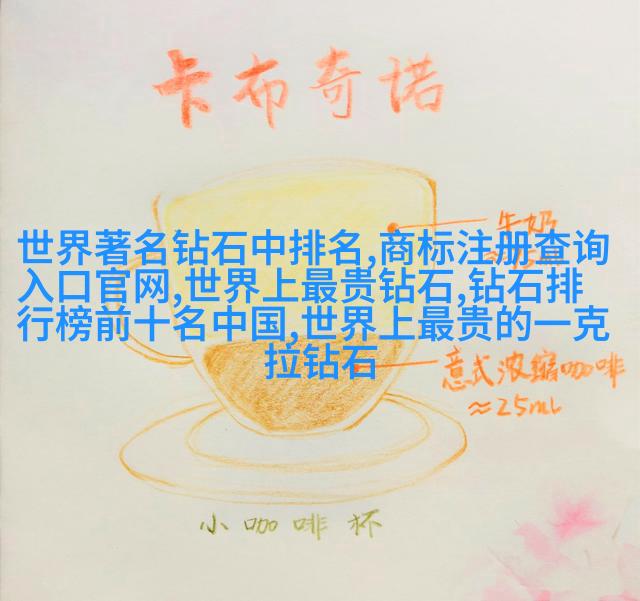 卡布奇诺
牛奶
世界著名钻石中排名,商标注册查询
入口官网,世界上最贵钻石,钻石排
行榜前十名中国,世界上最贵的一克
拉钻石
意式浓缩咖啡
≈25ml
小咖啡杯